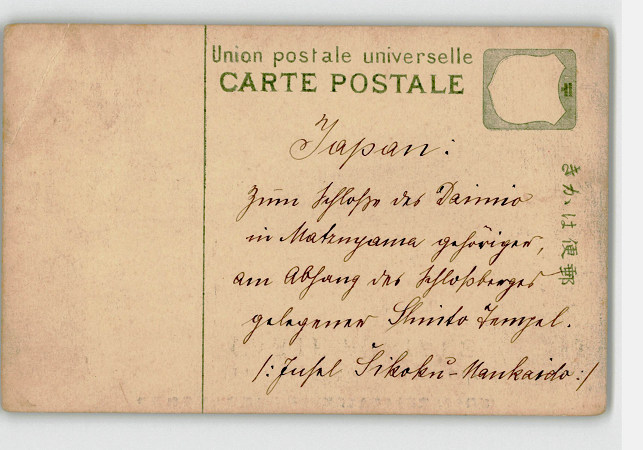 Union postale universelle
CARTE POSTALE
きかは便郵
Japan:
Zum Schloße des Daimio
in Matzuyama gehöriger,
am Abhang des Schloßberges
gelegener Shinto Tempel.
/: Insel Sikoku-Nankaido :/